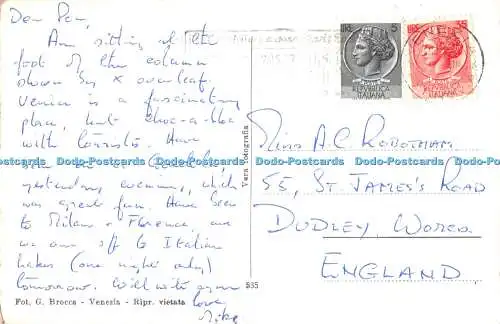 Dear Pam,
Am sitting at the
foot of the column
shown by X overleaf.
Venice is a fascinating
place, but choc-a-bloc
with tourists. Have
been on a Gondola,
yesterday evening, which
was great fun. Have been
to Milan & Florence, and
we are off to Italian
Lakes (one night only)
tomorrow. Will write again
love,
Mike
Fot. G. Brocca - Venezia - Ripr. vietata
Vera Fotografia
535
LIRE 5
REPVBBLICA
ITALIANA
LIRE
REPVBBLICA
ITALIANA
Miss A.C. ROBOTHAM
55, ST. JAMES'S ROAD
DUDLEY, WORCS.
ENGLAND
Dodo-Postcards Dodo-Postcards Dodo-Postcards Dodo-Postcards Dodo-Postcards